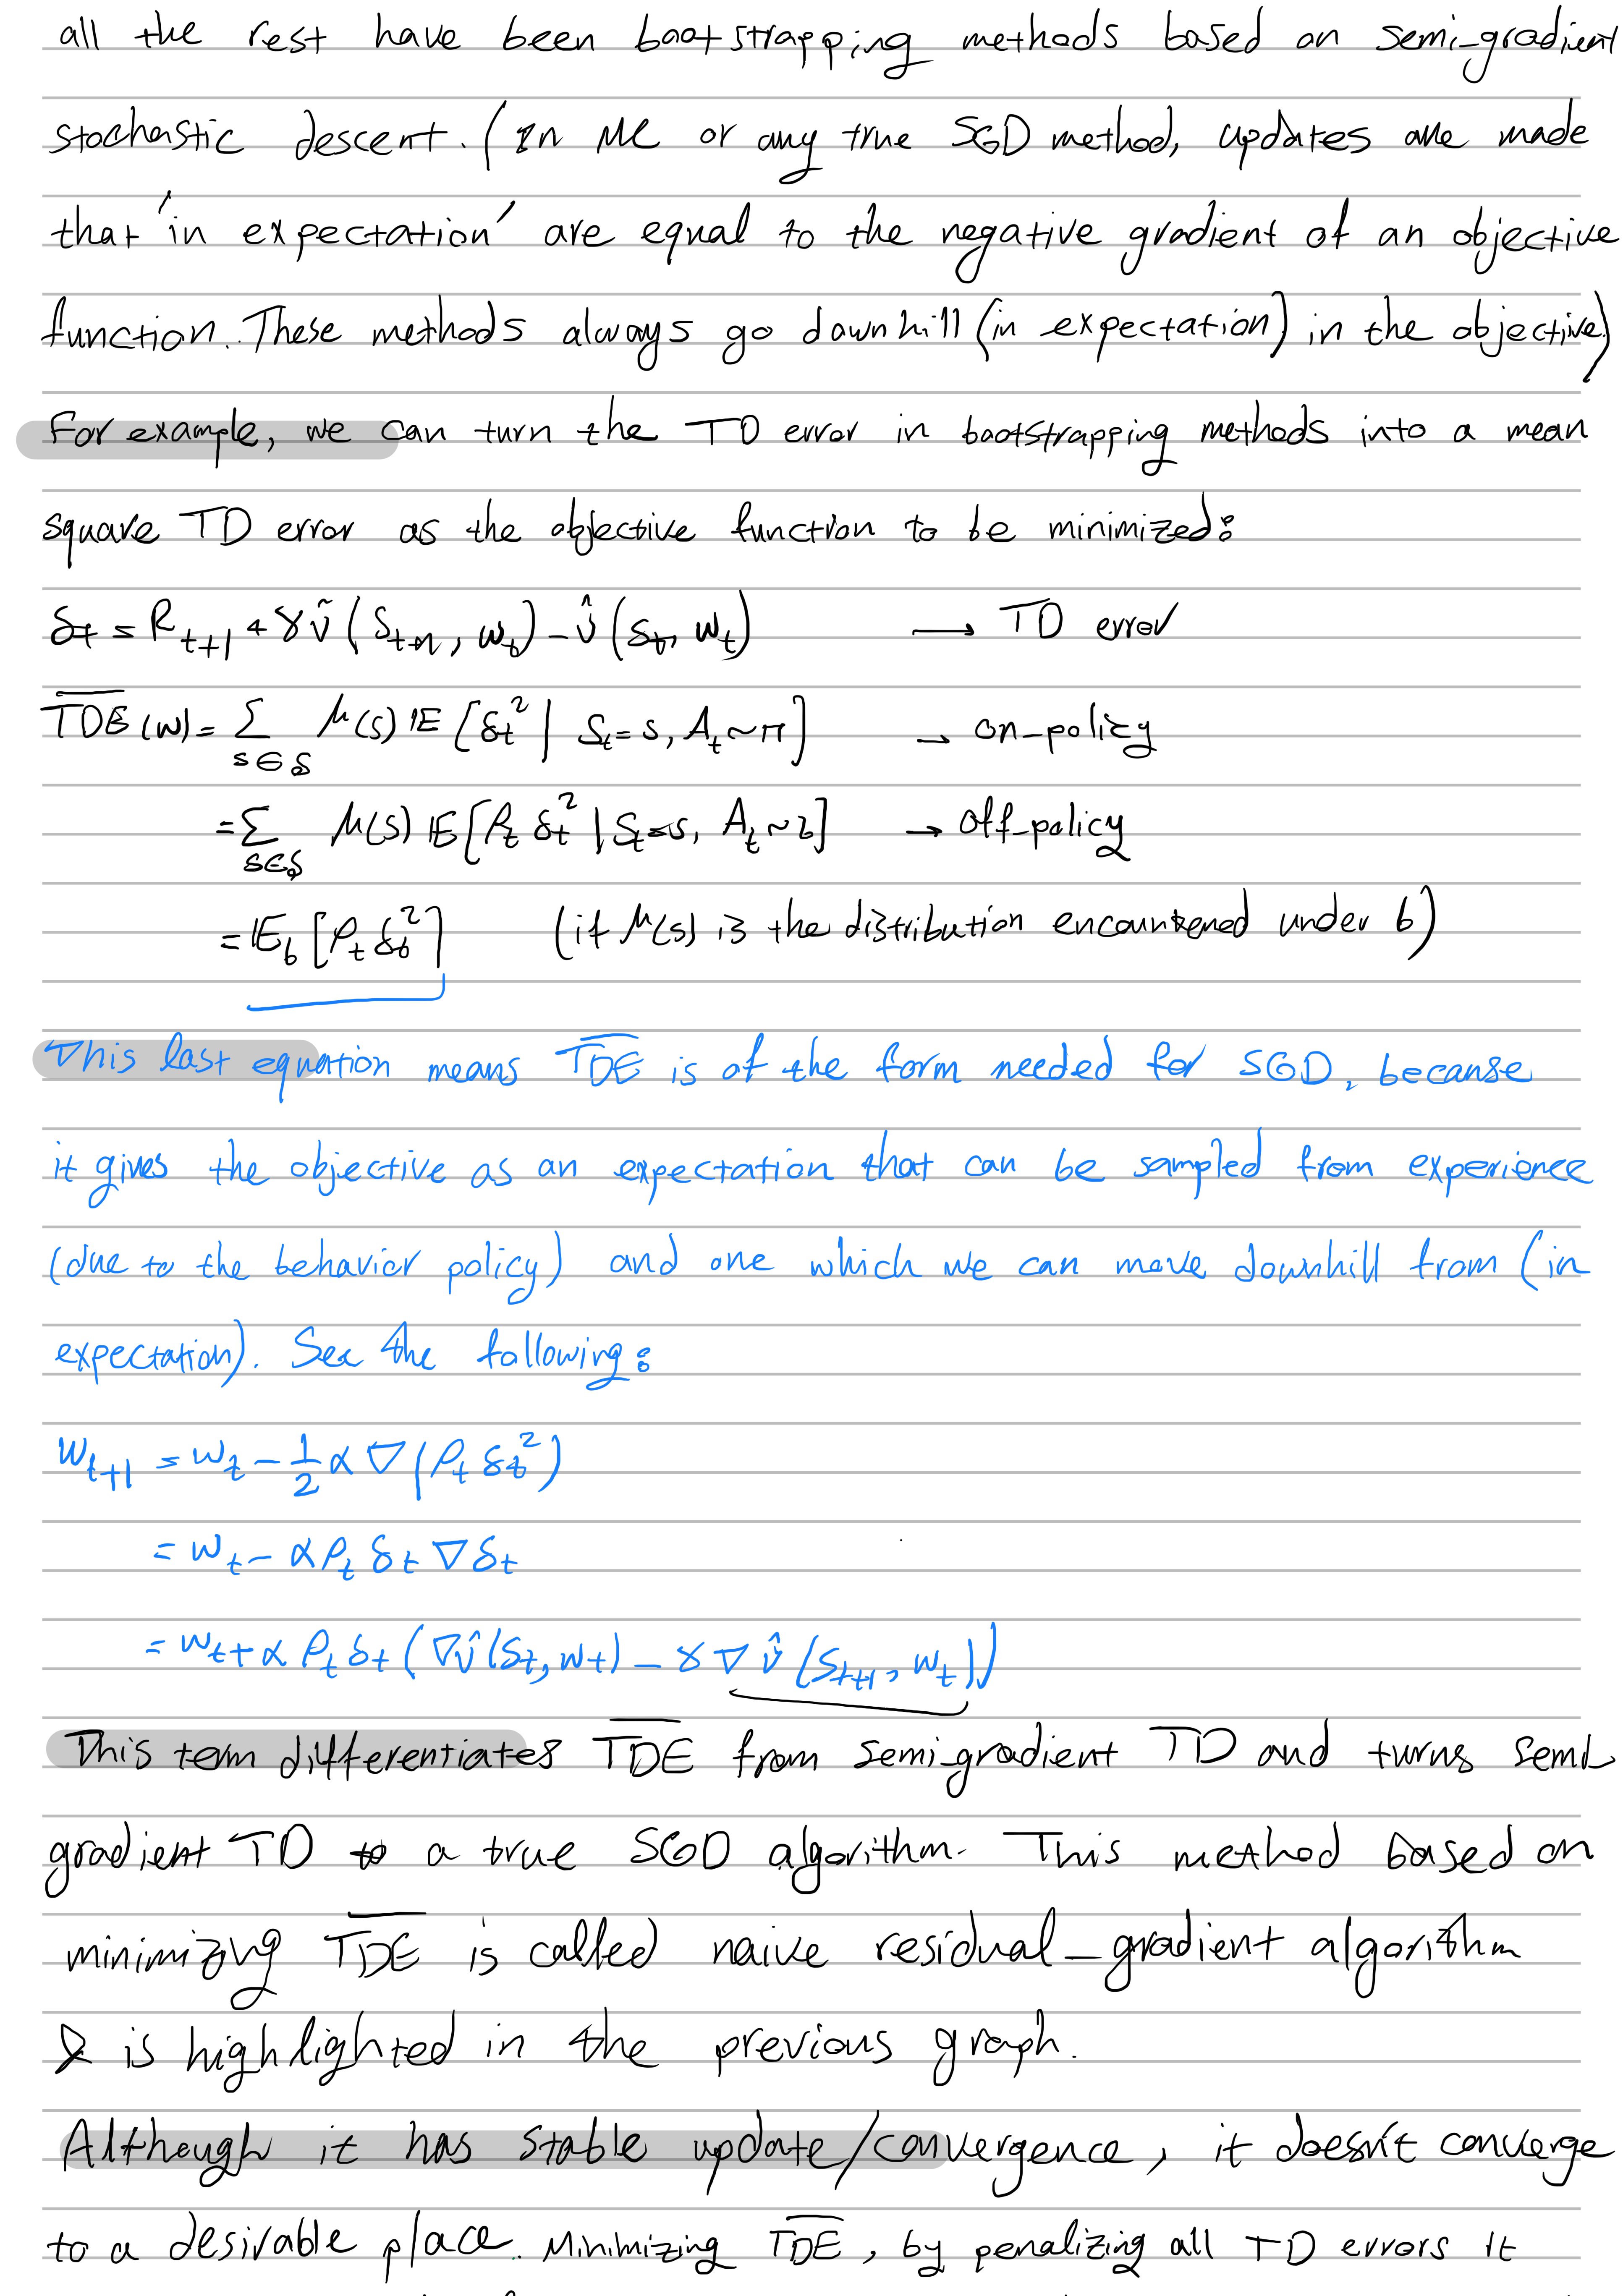 all the rest have been bootstrapping methods based on semi-gradient
stochastic descent. (In MC or any true SGD method, updates are made
that 'in expectation' are equal to the negative gradient of an objective
function. These methods always go downhill (in expectation) in the objective.)
For example, we can turn the TD error in bootstrapping methods into a mean
square TD error as the objective function to be minimized:
δt = R t+1 + γ v̂ (St+1, wt) - v̂ (St, wt) → TD error
T̅D̅E̅ (w) = Σ s∈S μ(s) 𝔼 [δt² | St = s, At ~ π] → on-policy
= Σ s∈S μ(s) 𝔼 [ρt δt² | St = s, At ~ b] → off-policy
= 𝔼b [ρt δt²] (if μ(s) is the distribution encountered under b)
This last equation means T̅D̅E̅ is of the form needed for SGD, because
it gives the objective as an expectation that can be sampled from experience
(due to the behavior policy) and one which we can move downhill from (in
expectation). See the following:
Wt+1 = wt - 1/2 α ∇ (ρt δt²)
= wt - α ρt δt ∇ δt
= wt + α ρt δt (∇v̂ (St, wt) - γ ∇ v̂ (St+1, wt))
This term differentiates T̅D̅E̅ from semi-gradient TD and turns semi-
gradient TD to a true SGD algorithm. This method based on
minimizing T̅D̅E̅ is called naive residual-gradient algorithm
& is highlighted in the previous graph.
Although it has stable update/convergence, it doesn't converge
to a desirable place. Minimizing T̅D̅E̅, by penalizing all TD errors it